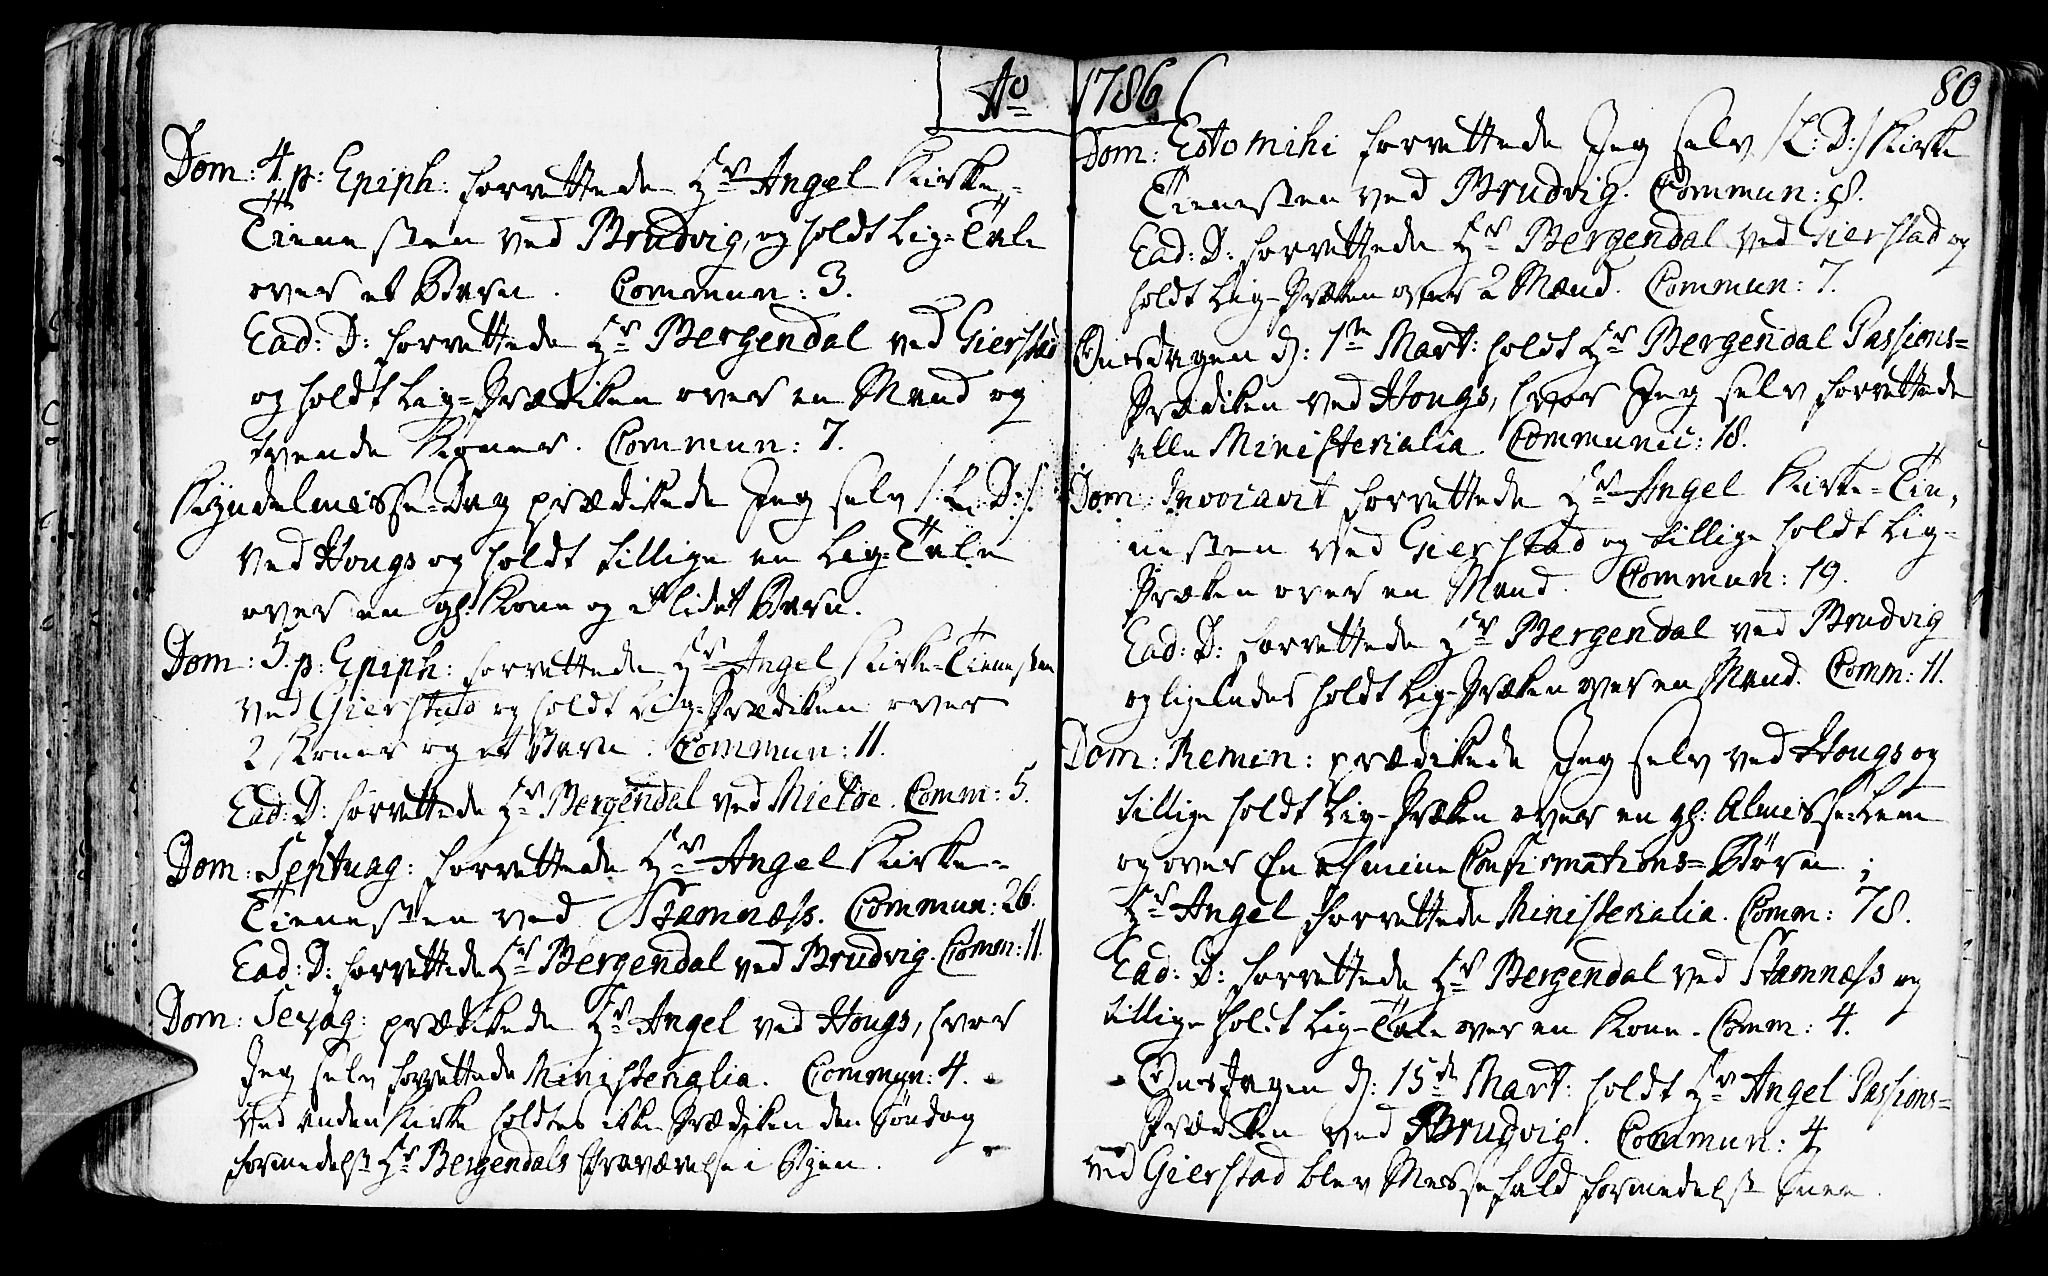 Ao 1786
80
Dom: 4. p: Epiph: forrettede Hr Angel Kirke-
Tienesten ved Brudvig, og holdt Lig-Tale
over et Barn. Commun: 3.
Ead: D: forrettede Hr Bergendal ved Gierstad
og holdt Lig-Prædiken over en Mand og
tvende Koner. Commun: 7.
Kyndelmisse-Dag prædikede Jeg selv /: L: D:/
ved Hougs og holdt tillige en Lig-Tale
over en gl: Kone og et lidet Barn.
Dom: 5. p: Epiph: forrettede Hr Angel Kirke-Tienesten
ved Gierstad og holdt Lig-Prædiken over
2 Koner og et Barn. Commun: 11.
Ead: D: forrettede Hr Bergendal ved Mielde. Comm: 5.
Dom: Septuag: forrettede Hr Angel Kirke-
Tienesten ved Stamnæss. Commun: 26.
Ead: D: forrettede Hr Bergendal ved Brudvig. Comm: 11.
Dom: Sexag: prædikede Hr Angel ved Hougs, hvor
Jeg selv forrettede Ministerialia. Commun: 4.
Ved anden Kirke holdtes ikke Prædiken den Søndag
formedelst Hr Bergendals Fraværelse i Byen.
Dom: Estomihi forrettede Jeg selv /L: D:/ Kirke
Tienesten ved Brudvig. Commun: 8.
Ead: D: forrettede Hr Bergendal ved Gierstad og
holdt Lig-Præken over 2 Mænd. Commun: 7.
Onsdagen d: 1te Mart: holdt Hr Bergendal Passions-
Prædiken ved Hougs, hvor Jeg selv forrettede
alle Ministerialia. Communic: 18.
Dom: Invocavit forrettede Hr Angel Kirke-Tie-
nesten ved Gierstad og tillige holdt Lig-
Præken over en Mand. Commun: 19.
Ead: D: forrettede Hr Bergendal ved Brudvig
og ligeledes holdt Lig-Præken over en Mand. Comm: 11.
Dom: Remin: prædikede Jeg selv ved Hougs og
tillige holdt Lig-Præken over en gl: Almisse-Lem
og over En af mine Confirmations-Børn;
Hr Angel forrettede Ministerialia. Comm: 78.
Ead: D: forrettede Hr Bergendal ved Stamnæss og
tillige holdt Lig-Tale over en Kone. Comm: 4.
Onsdagen d: 15de Mart: holdt Hr Angel Passions-
Prædiken ved Brudvig. Commun: 4,
ved Gierstad blev Messefald formedelst Snee.